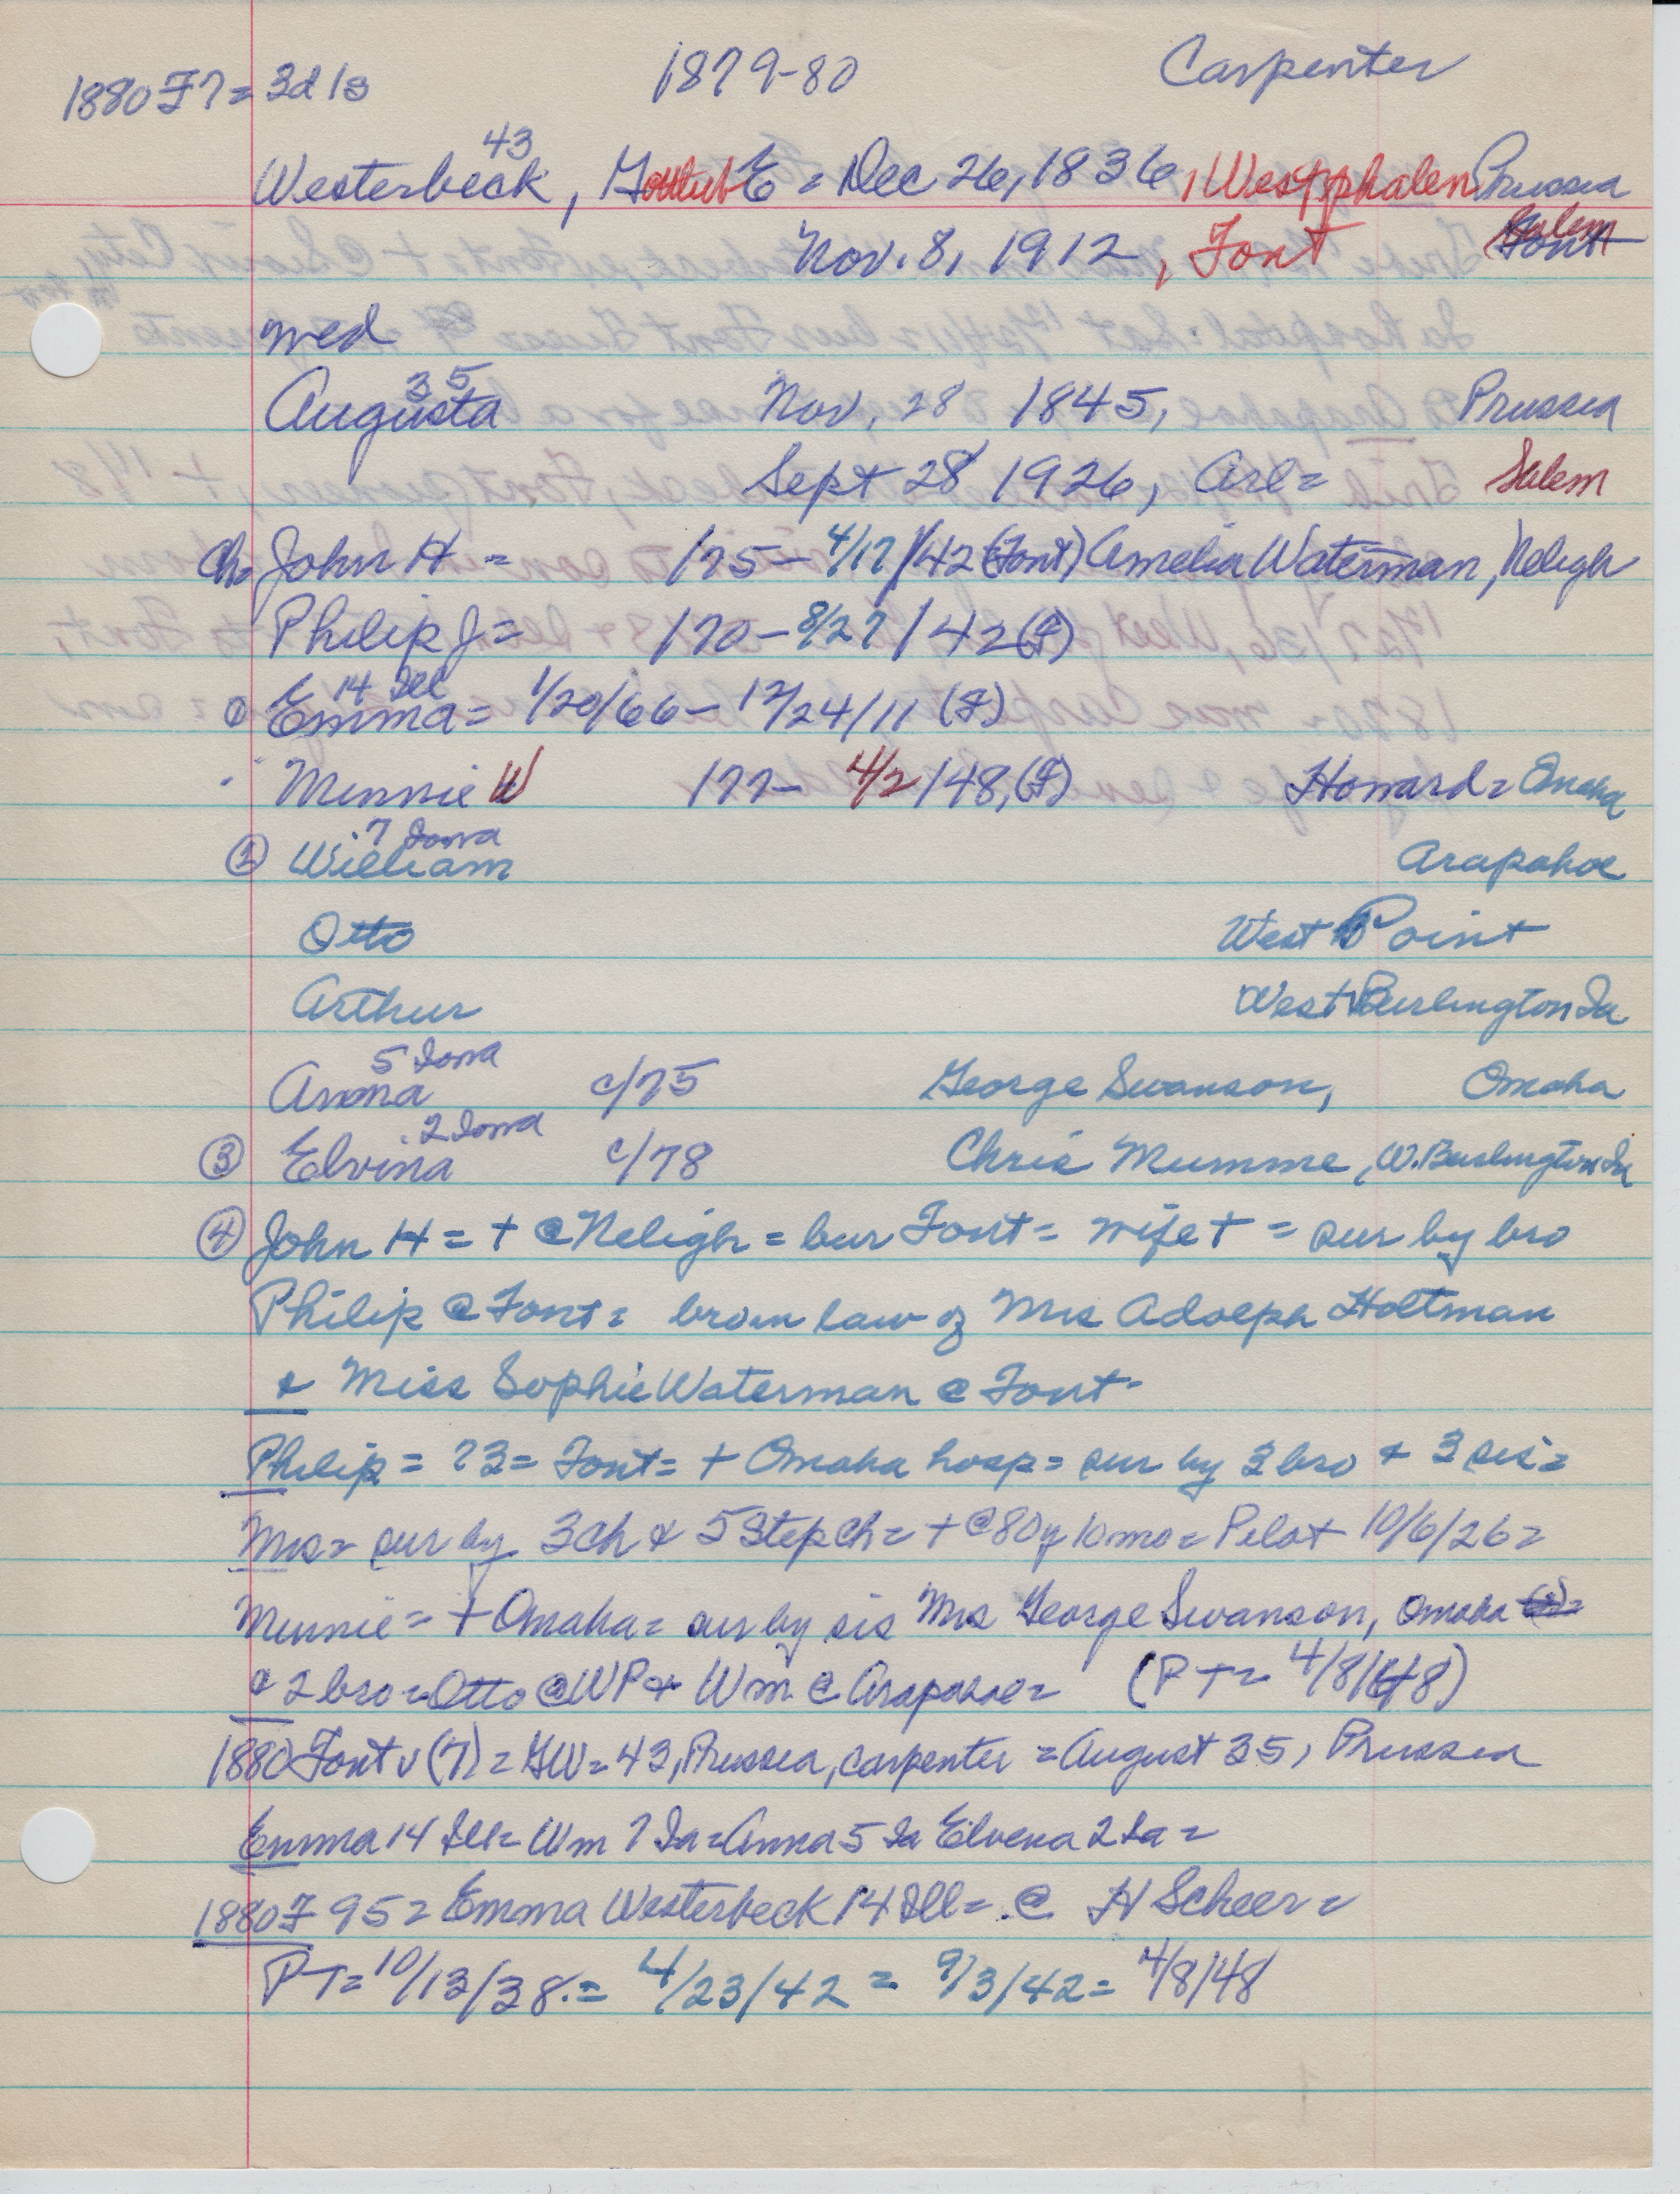 1880 F7 = 3d 1s 1879-80 Carpenter
43
Westerbeck, Gottlieb E = Dec 26, 1836, Westphalen Prussia
Nov. 8, 1912, Font Salem
Font
wed
35
Augusta Nov. 28 1845, Prussia
Sept 28 1926, Arl = Salem
Ch= John H = /75 - 4/17/42 (Font) Amelia Waterman, Neligh
Philip J = /70 - 8/27/42 (F)
14 Ill
Emma = 1/20/66 - 12/24/11 (F)
Minnie W /77 - 4/2/48, (F) Howard = Omaha
7 Iowa
② William Arapahoe
Otto West Point
Arthur West Burlington Ia
5 Iowa
Anna c/75 George Swanson, Omaha
2 Iowa
③ Elvina c/78 Chris Mumme, W. Burlington Ia
④ John H = + @ Neligh = bur Font = wife + = sur by bro
Philip @ Font = bro in law of Mrs Adolph Holtman
& Miss Sophie Waterman @ Font -
Philip = 73 = Font = + Omaha hosp = sur by 3 bro + 3 sis =
Mrs = sur by 3 ch & 5 Step ch = + @ 80 y 10 mo = Pilot 10/6/26 =
Minnie = + Omaha = sur by sis Mrs George Swanson, Omaha
& 2 bro = Otto @ WP & Wm @ Arapahoe = (PT = 4/8/48)
1880 Font v (7) = GW = 43, Prussia, carpenter = August 35, Prussia
Emma 14 Ill = Wm 7 Ia = Anna 5 Ia Elvena 2 Ia =
1880 F 95 = Emma Westerbeck 14 Ill = @ H Scheer =
PT = 10/13/38. = 4/23/42 = 9/3/42 = 4/8/48